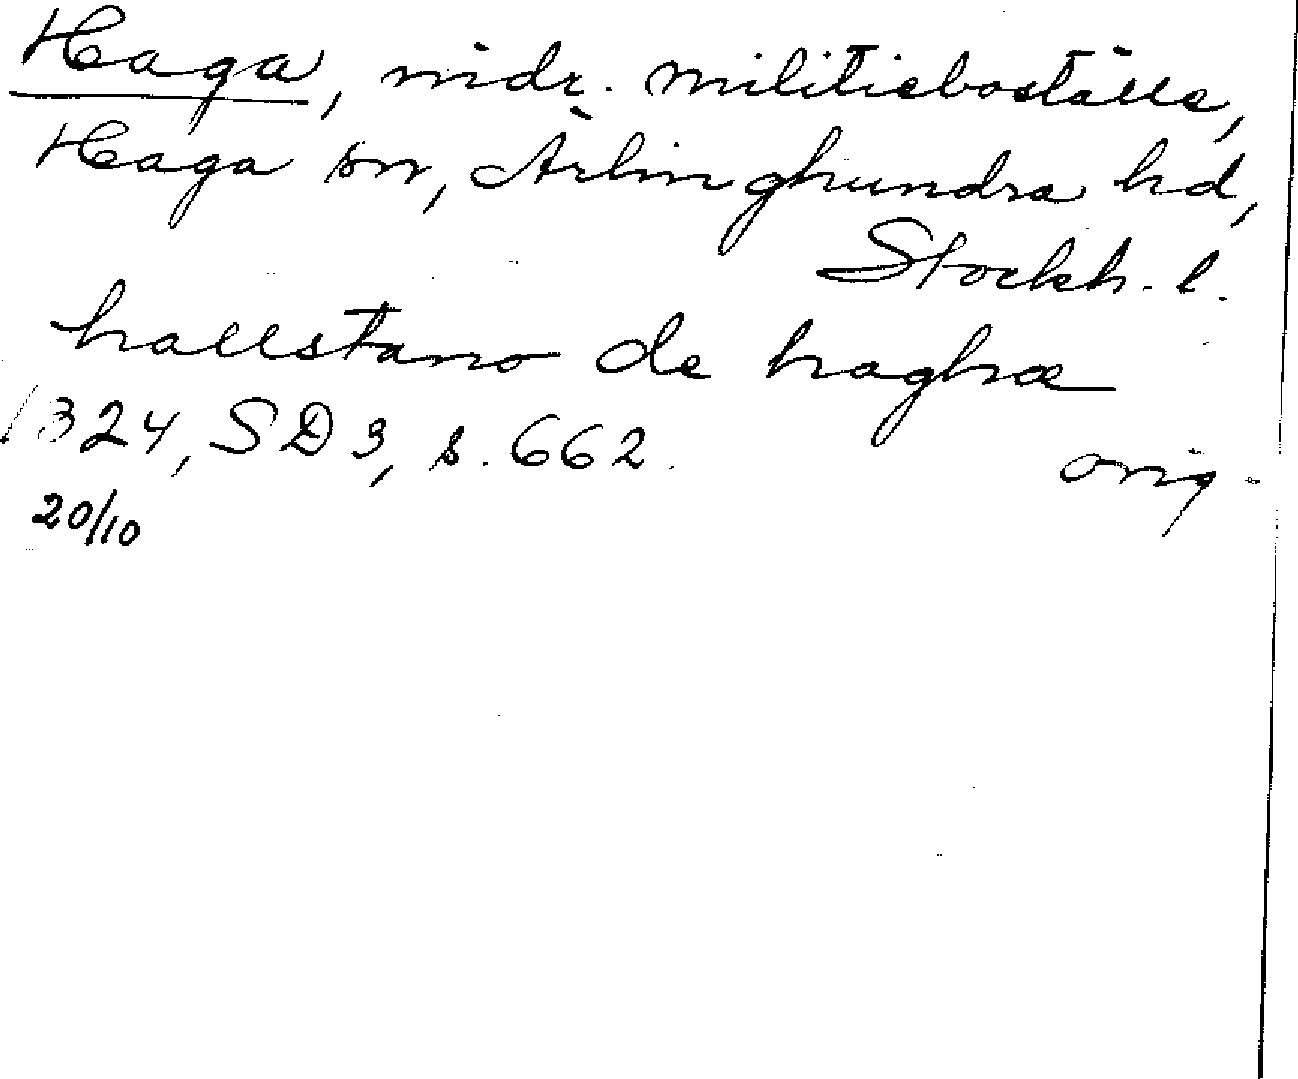 Haga, indr. militieboställe,
Haga sn, Ärlinghundra hd,
Stockh. l.
hallstano de haghæ
1324, SD 3, s. 662.
orig.
20/10